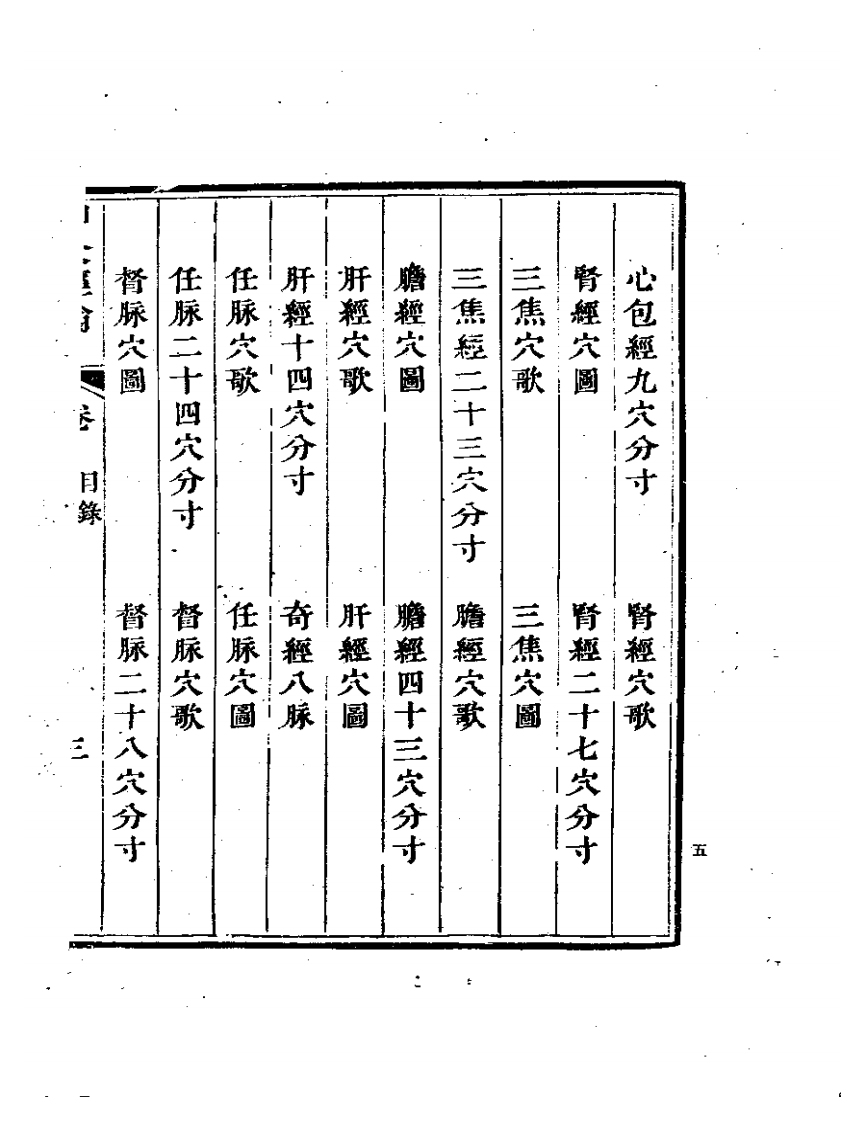 心包經九穴分寸　腎經穴歌
腎經穴圖　腎經二十七穴分寸
三焦穴歌　三焦穴圖
三焦經二十三穴分寸　膽經穴歌
膽經穴圖　膽經四十三穴分寸
肝經穴歌　肝經穴圖
肝經十四穴分寸　奇經八脉
任脉穴歌　任脉穴圖
任脉二十四穴分寸　督脉穴歌
督脉穴圖　督脉二十八穴分寸
卷　目錄　三
五